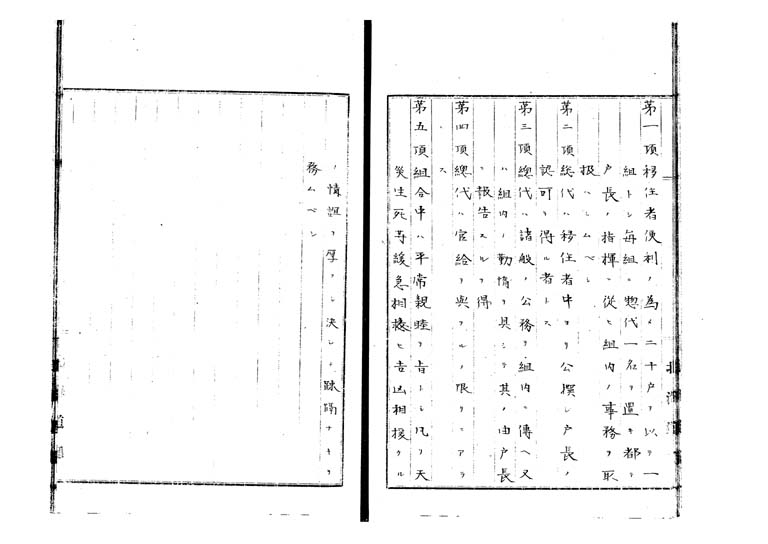 第一項移住者便利ノ為メ二十戸ヲ以テ一
組トシ毎組ニ惣代一名ヲ置キ都テ
戸長ノ指揮ニ従ヒ組内ノ事務ヲ取
扱ハシムベシ
第二項総代ハ移住者中ヨリ公撰シ戸長ノ
認可ヲ得ル者トス
第三項總代ハ諸般ノ公務ヲ組内ニ傳ヘ又
ハ組内ノ勤惰ヲ具シテ其ノ由戸長
ヘ報告スルヲ得
第四項總代ハ官給ヲ與フルノ限リニアラ
ス
第五項組合中ハ平常親睦ヲ旨トシ凡ソ天
災生死等緩急相接ヒ吉凶相援クル
ノ情誼ヲ厚フシ決シテ疎隔ナキヲ
務ムベシ